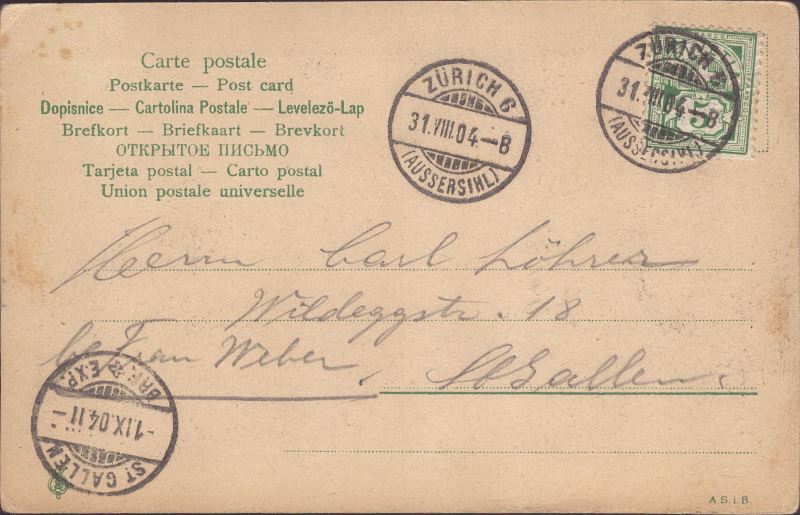 Carte postale
Postkarte — Post card
Dopisnice — Cartolina Postale — Levelezö-Lap
Brefkort — Briefkaart — Brevkort
ОТКРЫТОЕ ПИСЬМО
Tarjeta postal — Carto postal
Union postale universelle
ZÜRICH 6
31.VIII.04.–8
(AUSSERSIHL)
ZÜRICH 6
31.VIII.04–8
(AUSSERSIHL)
FRANCO
5
Herrn Carl Löhrer
Wildeggstr. 18
bei Frau Weber, St Gallen.
BRF. EXP.
–1.IX.04 11–
ST GALLEN
A.S.i.B.